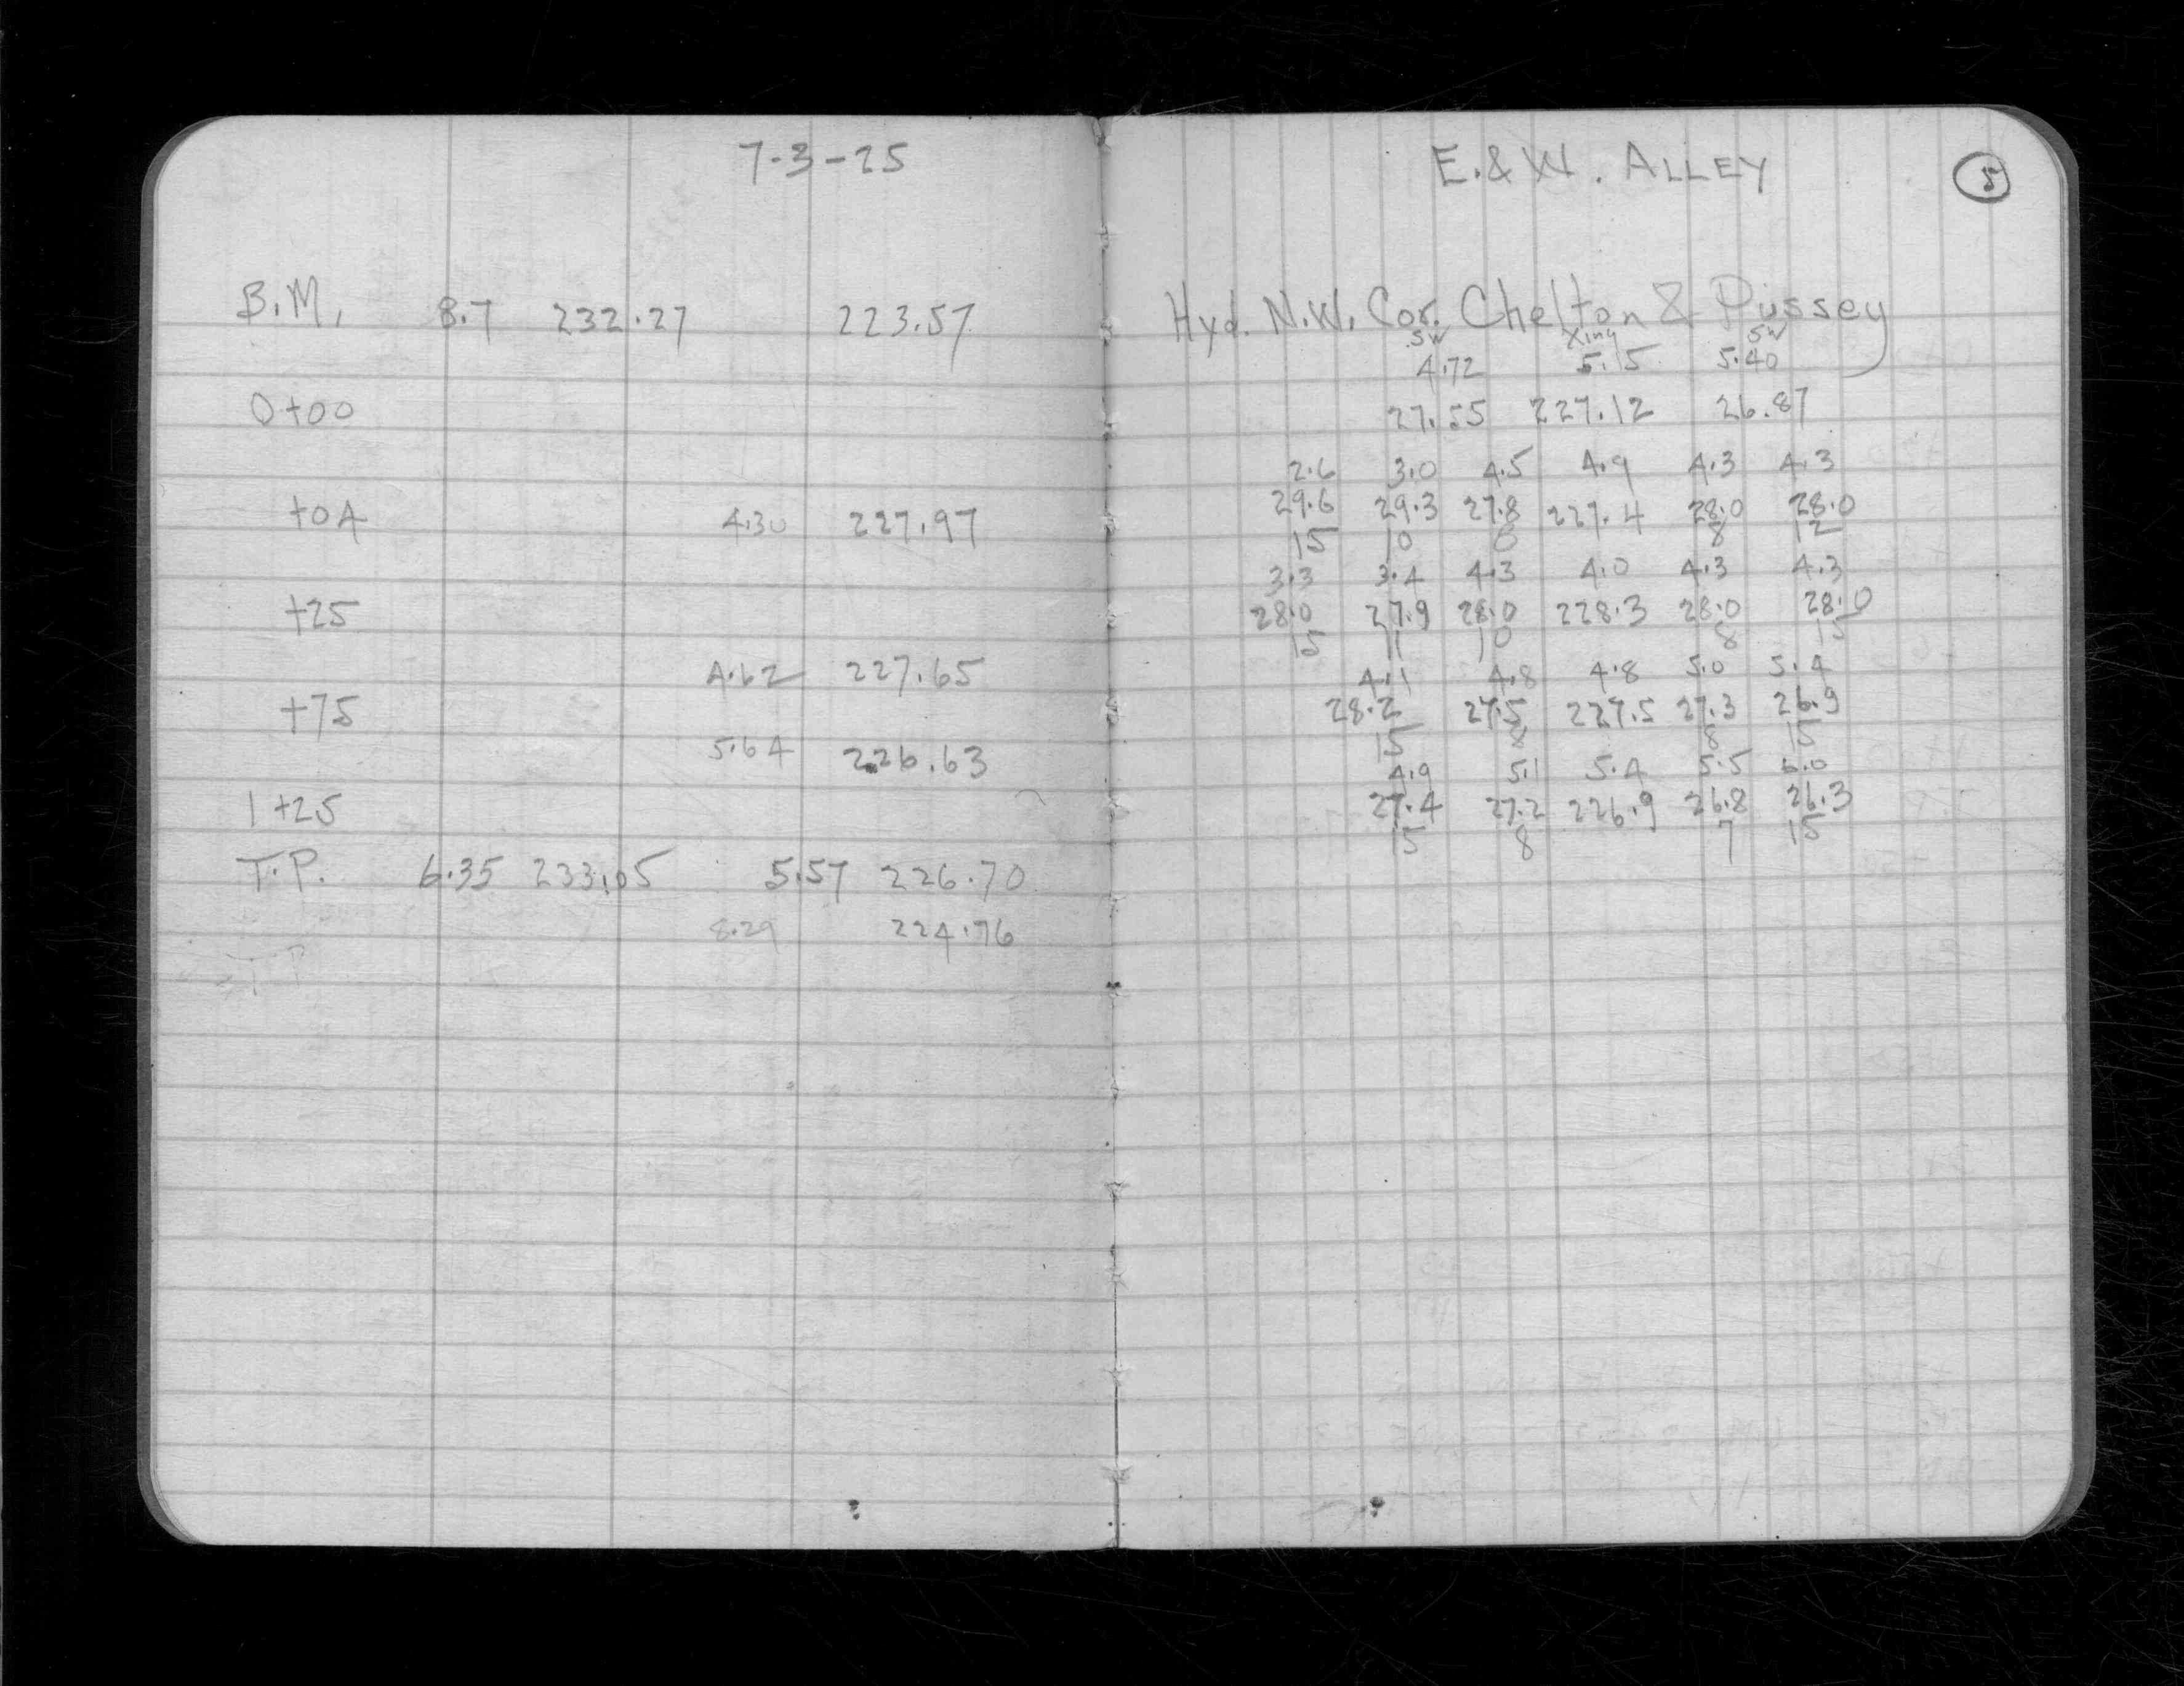 7-3-25
B.M. 8.7 232.27 223.57
0+00
+04 4.30 227.97
+25
4.62 227.65
+75
5.64 226.63
1+25
T.P. 6.35 233.05 5.57 226.70
8.29 224.76
T.P.
E. & W. ALLEY 5
Hyd. N.W. Cor. Chelton & Pussey
SW Xing SW
4.72 5.15 5.40
27.55 227.12 26.87
2.6 3.0 4.5 4.9 4.3 4.3
29.6 29.3 27.8 227.4 28.0 28.0
15 10 8 8 12
3.3 3.4 4.3 4.0 4.3 4.3
28.0 27.9 28.0 228.3 28.0 28.0
15 11 10 8 15
4.1 4.8 4.8 5.0 5.4
28.2 27.5 227.5 27.3 26.9
15 8 8 15
4.9 5.1 5.4 5.5 6.0
27.4 27.2 226.9 26.8 26.3
15 8 7 15